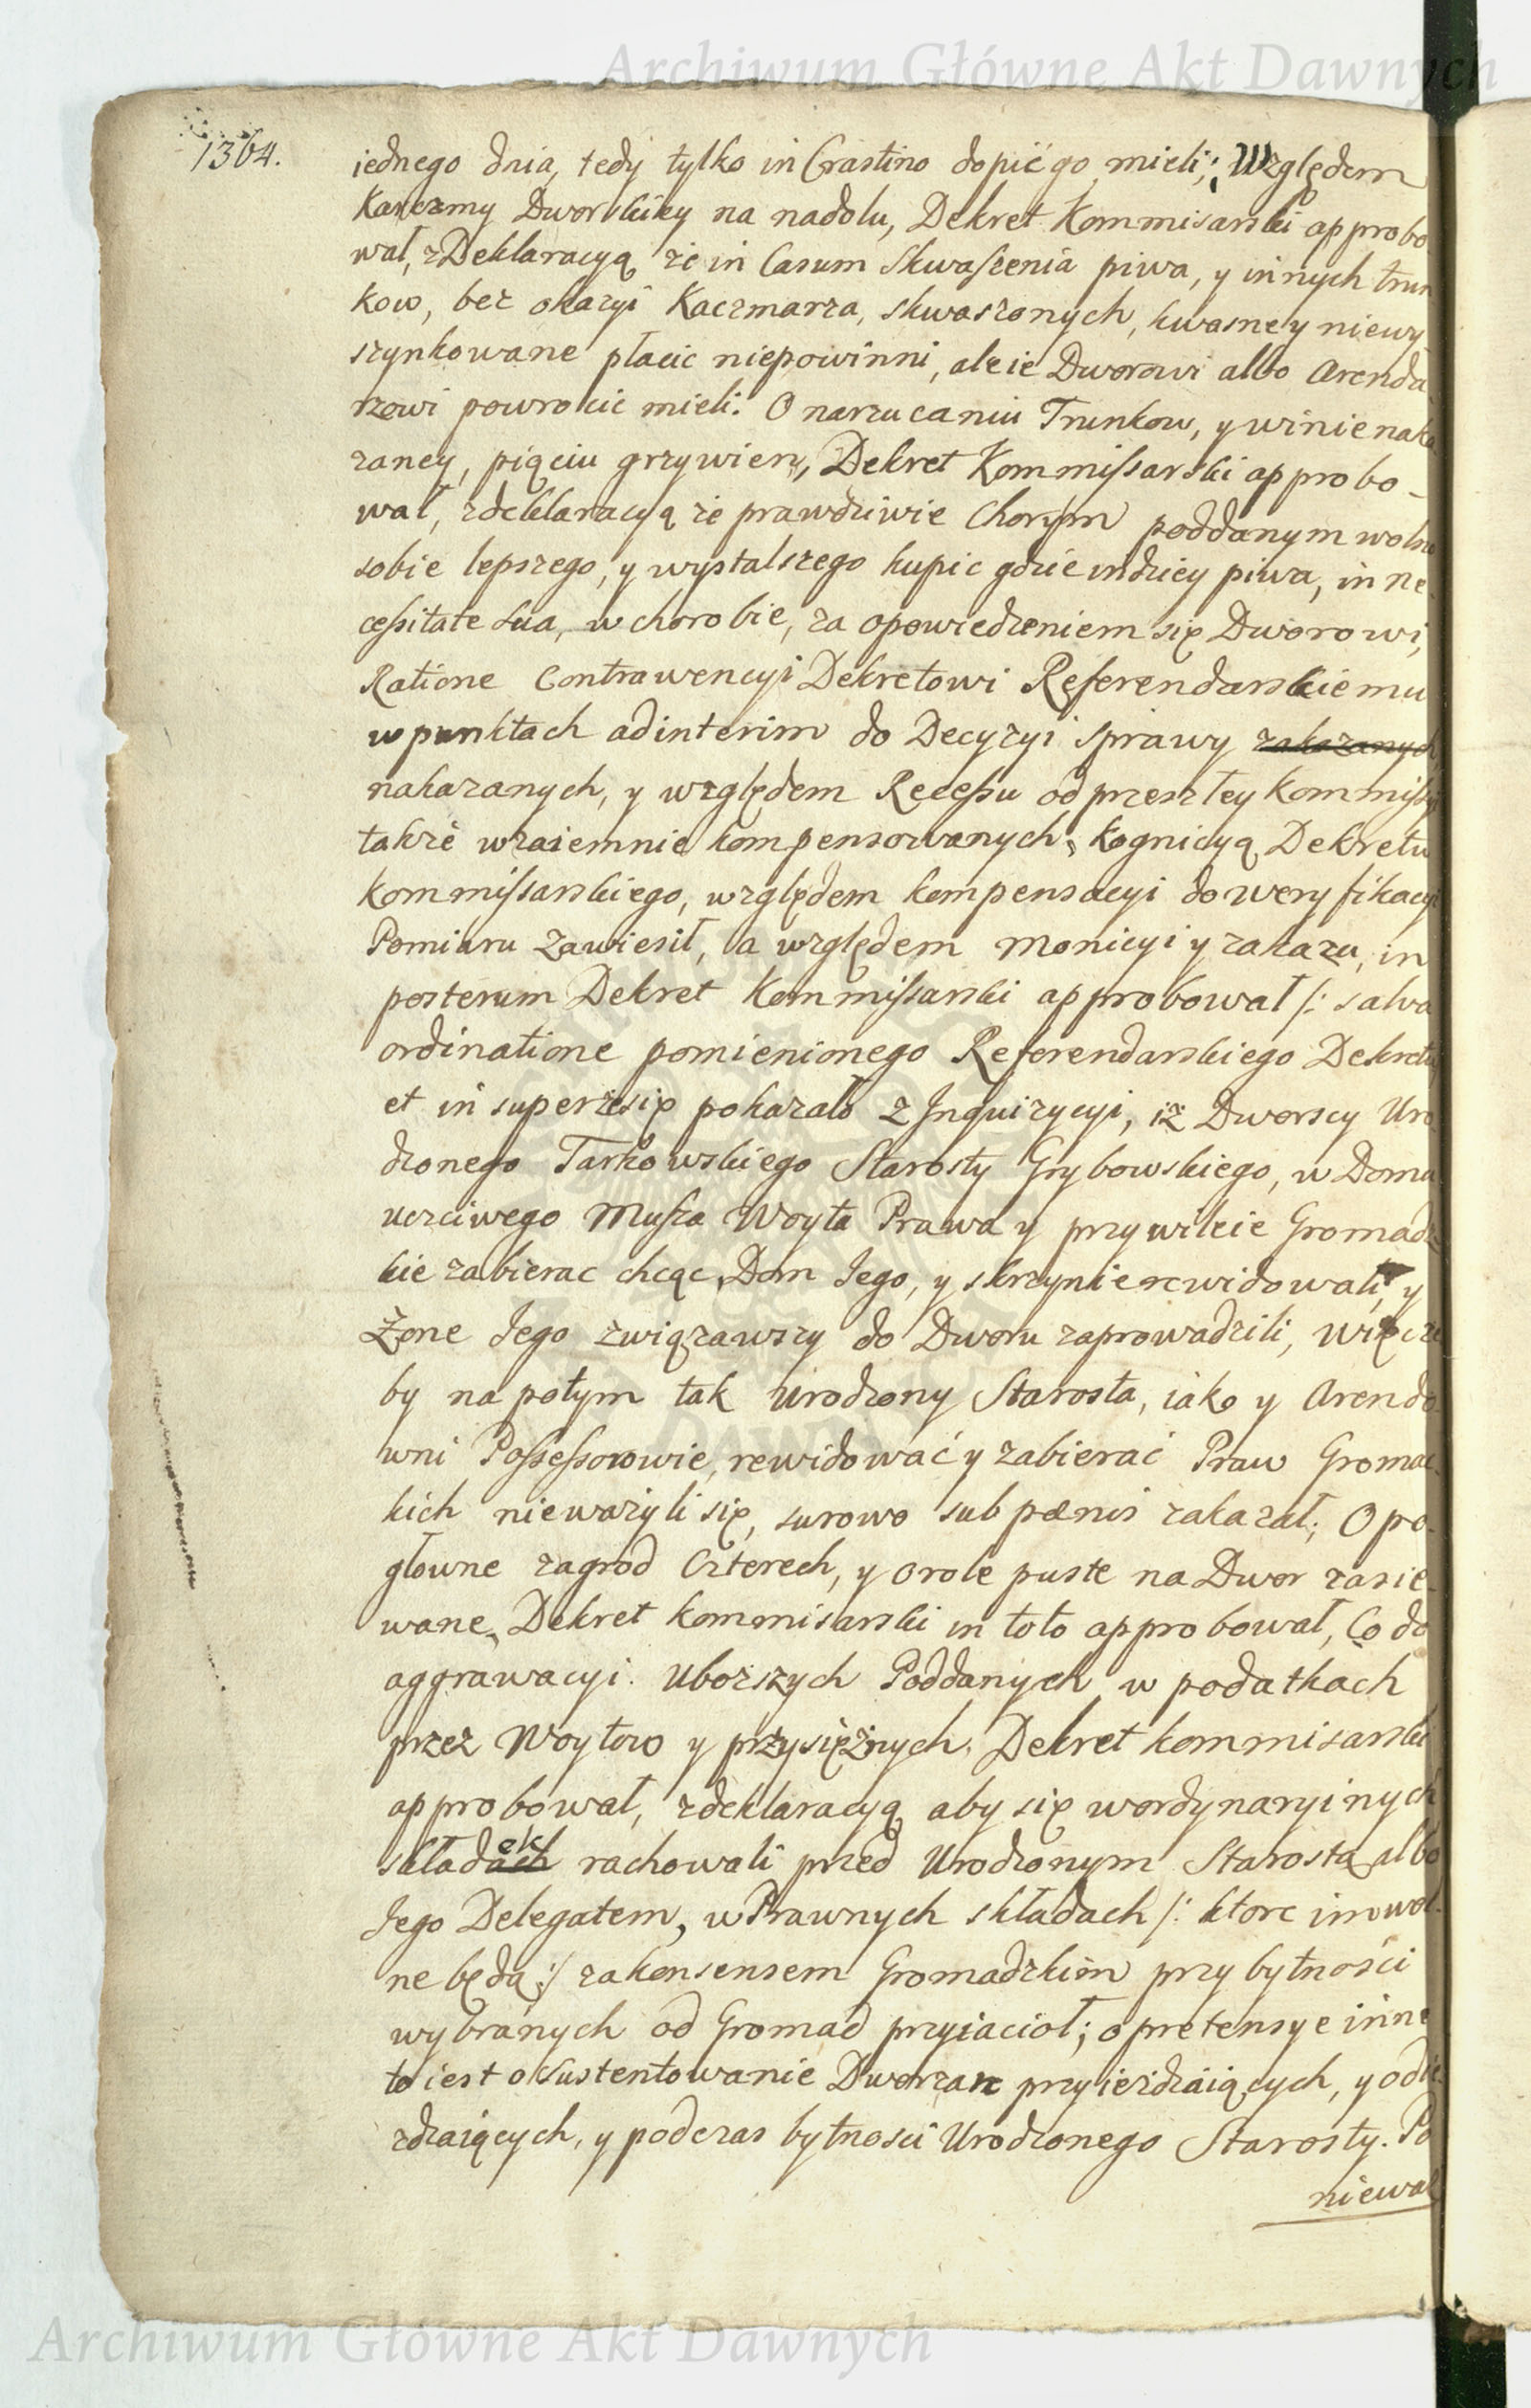 Archiwum Główne Akt Dawnych
1364.
iednego dnia, tedy tylko in Crastino dopić go mieli; Względem
Karczmy Dworskiey na nadolu, Dekret Kommisarski approbo
wał, z Deklaracyą że in Casum Skwaszenia piwa, y innych trun
kow, bez okazyi Kaczmarza, skwaszonych, kwasne y niewy
szynkowane płacic niepowinni, ale ie Dworowi albo Arenda
rzowi powrocic mieli. O narzucaniu Trunkow, y winie naka
zaney, piąciu grzywien, Dekret Kommissarski approbo-
wał, z deklaracyą że prawdziwie Chorym poddanym wolno
sobie lepszego, y wystalszego kupic gdzie indziey piwa, in ne
cessitate sua, w chorobie, za opowiedzeniem się Dworowi,
Ratione Contrawencyi Dekretowi Referendarskiemu
w punktach ad interim do Decyzyi sprawy zakazanych
nakazanych, y względem Recessu od przeszłey Kommissyi
także wzaiemnie kompensowanych, kognicyą Dekretu
Kommissarskiego, względem kompensacyi do weryfikacyi
Pomiaru zawiesił, a względem monicyi y zakazu, in
posterum Dekret Kommissarski approbował /: salva
ordinatione pomienionego Referendarskiego Dekretu
et insuper że się pokazało z Inquizycyi, iż Dworscy Uro
dzonego Tarkowskiego Starosty Grybowskiego, w Domu
uczciwego Musza Woyta Prawa y przywileie Gromadz
kie zabierac chcąc, Dom Jego, y skrzynie rewidowali, y
Żone Jego związawszy do Dworu zaprowadzili, więc że
by na potym tak Urodzony Starosta, iako y Arendo
wni Possessorowie, rewidować y zabierać Praw Gromac
kich nieważyli się, surowo sub pœnis zakazał; O po-
głowne zagrod Czterech, y o role puste na Dwor zasie-
wane, Dekret kommisarski in toto approbował, Co do
aggrawacyi. Uboższych Poddanych w podatkach
przez Woytow y przysiężnych, Dekret kommisarski
approbował, z deklaracyą aby się w ordynaryinych
składach rachowali przed Urodzonym Starostą albo
Jego Delegatem, w Prawnych składach /: ktore im wol-
ne będą :/ za konsensem Gromadzkim przy bytności
wybranych od Gromad przyiacioł; o pretensye inne
to iest o sustentowanie Dworzan przyieżdzaiących, y odie-
zdzaiących, y podczas bytnosci Urodzonego Starosty. Po
niewaz
Archiwum Główne Akt Dawnych